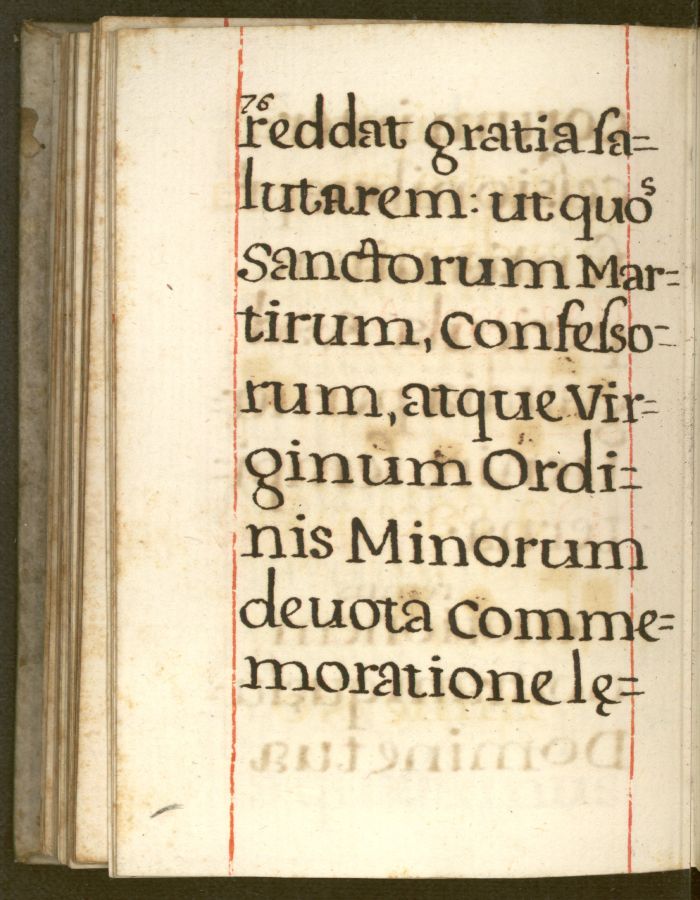 76
reddat gratia ſa=
lutarem: ut quos
sanctorum Mar=
tirum, Confeſso=
rum, atque Vir=
ginum Ordi=
nis Minorum
deuota comme=
moratione lę=